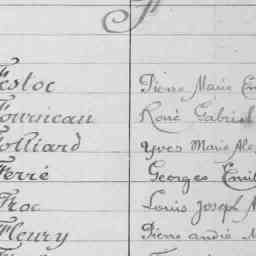 F
Pierre Marie
Fournieau René Gabriel
Folliard Yves Marie
Ferré Georges
Froc Louis Joseph M
Fleury Pierre andré M